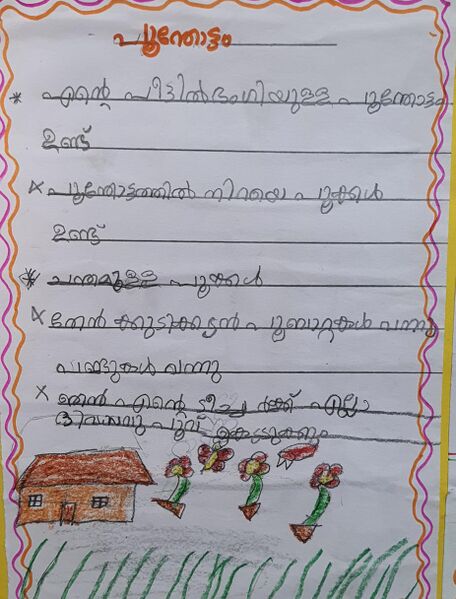 പൂന്തോട്ടം
* എന്റെ വീട്ടിൽ ഭംഗിയുള്ള പൂന്തോട്ടം
ഉണ്ട്
x പൂന്തോട്ടത്തിൽ നിറയെ പൂക്കൾ
ഉണ്ട്
* ചന്തമുള്ള പൂക്കൾ
x തേൻ കുടിക്കാൻ പൂമ്പാറ്റകൾ വന്നു
വണ്ടുകൾ വന്നു
x ഞൻ എന്റെ ടീച്ചർക്ക് എല്ലാ
ദിവസവു പൂവ്